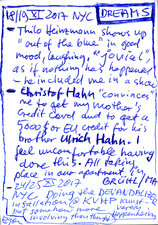 18/19 XI 2017 NYC DREAMS
- Thilo Heinzmann shows up
"out of the blue" in good
mood, laughing, "jovial",
as if nothing has happened
- he included me in a show
Christof Hahn "convinces"
me to get my mother's
Credit Card and to get a
5000 $ or EU credit for his
brother Ulrich Hahn. I
feel uncomfortable having
done this. All taking
place in our apartment in
BROOKL/MA
XI 2017
NYC, Doing the DEVALDACIZE
installation @ KVHP
but somehow more
involving than